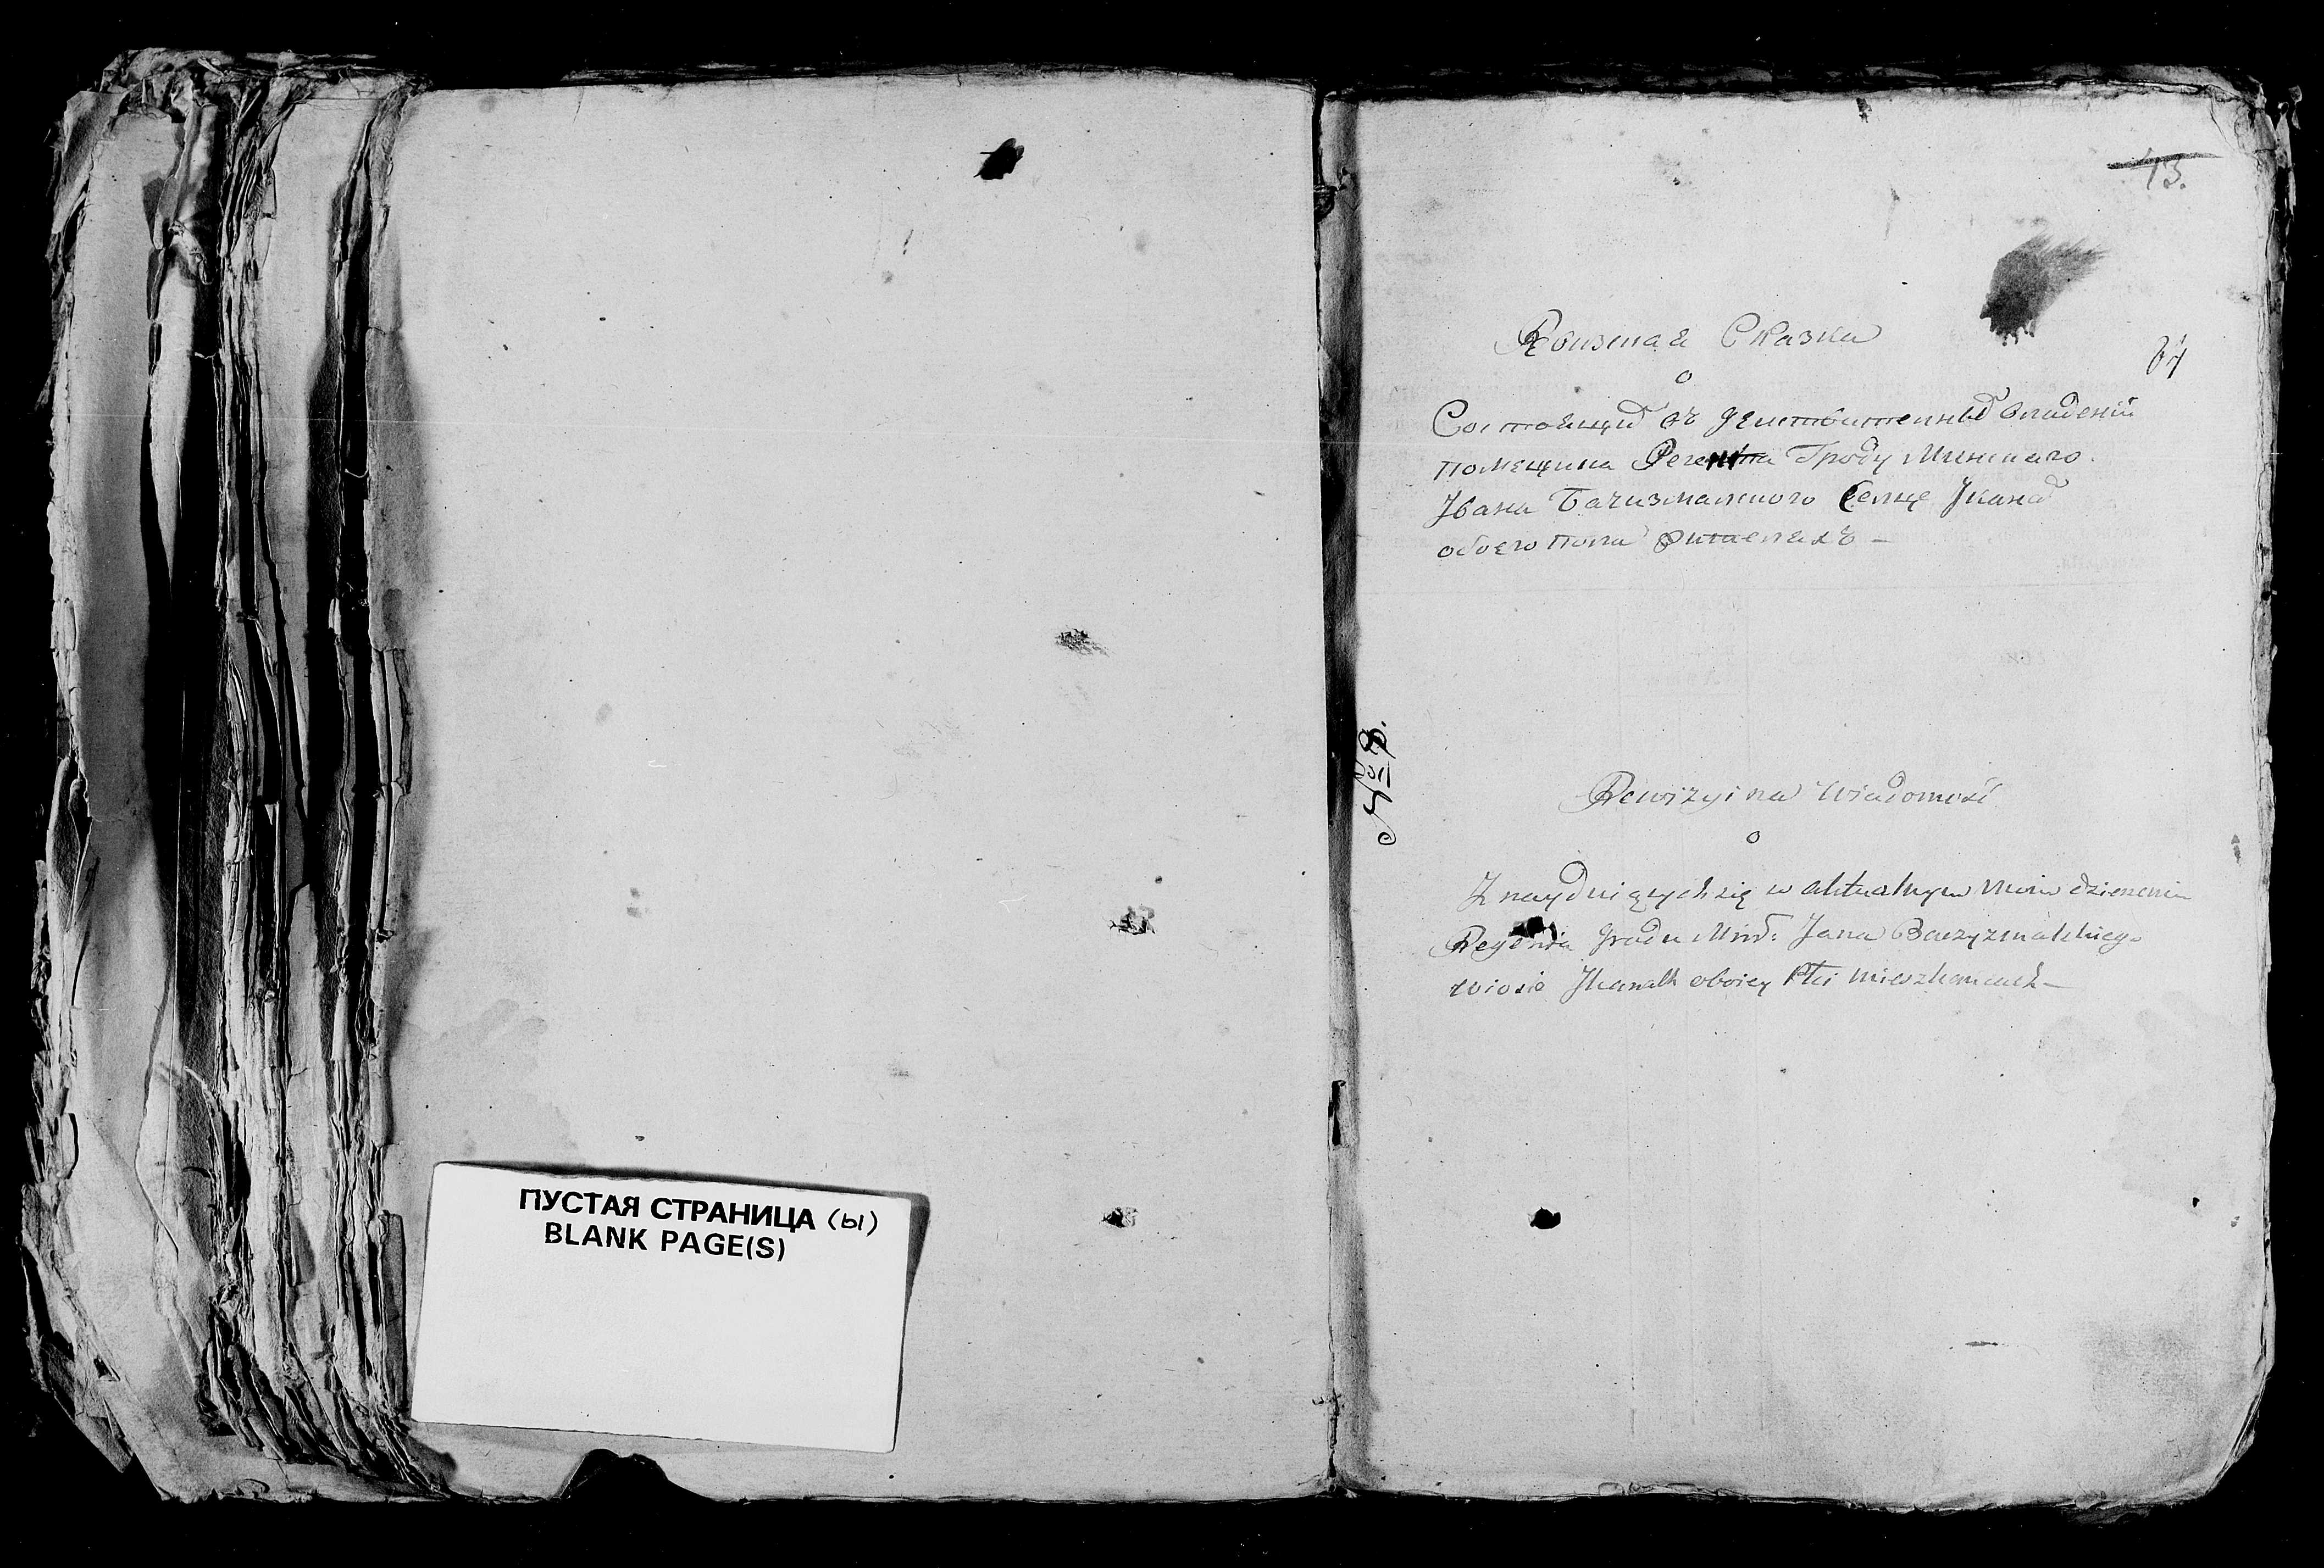 ПУСТАЯ СТРАНИЦА (ы)
BLANK PAGE(S)
13.
Ревизская Сказка
о
67
Состоящих въ действителных владении
помещика Регента Гроду Минского
Ивана Бачизмалского Селце Иканах
обоего пола жителехъ —
№ 8.
Rewizyina Wiadomość
o
Znayduiących się w aktualnym
Regenta Grodu Miń: Jana Baczyzmalskiego
wiosie Ikanach oboiey Płci mieszkancach —